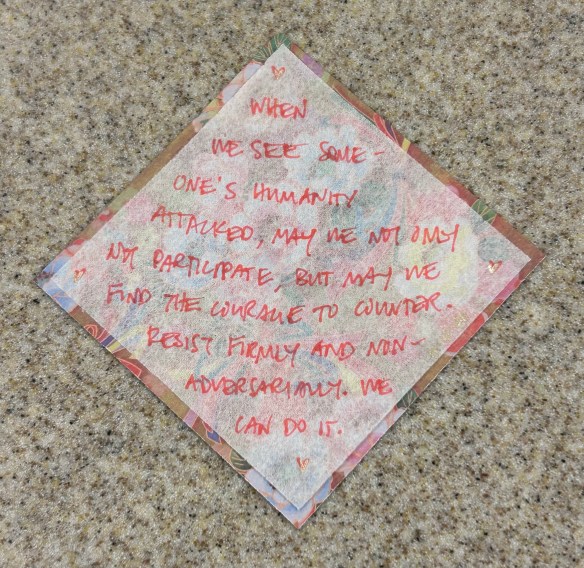 WHEN
WE SEE SOME-
ONE'S HUMANITY
ATTACKED, MAY WE NOT ONLY
NOT PARTICIPATE, BUT MAY WE
FIND THE COURAGE TO COUNTER.
RESIST FIRMLY AND NON-
ADVERSARIALLY. WE
CAN DO IT.